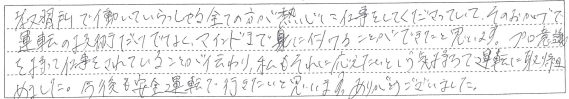 教習所で働いていらっしゃる全ての方が熱心に仕事をしてくださっていて、そのおかげで
運転の技術だけでなく、マインドまで身に付けることができたと思います。プロ意識
を持って仕事をされていることが伝わり、私もそれに応えたいという気持ちで運転に取り組
めました。今後も安全運転で行きたいと思います。ありがとうございました。